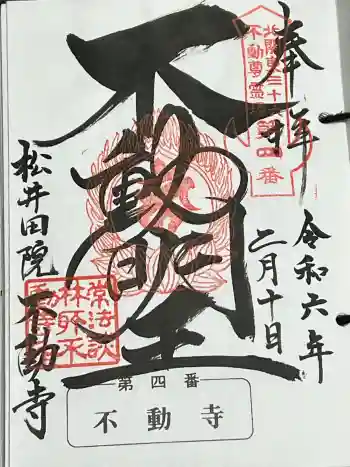 奉拝
令和六年
二月十日
北関東三十六
不動尊霊場
第四番
不動明王
松井田院
不動寺
第四番
不動寺